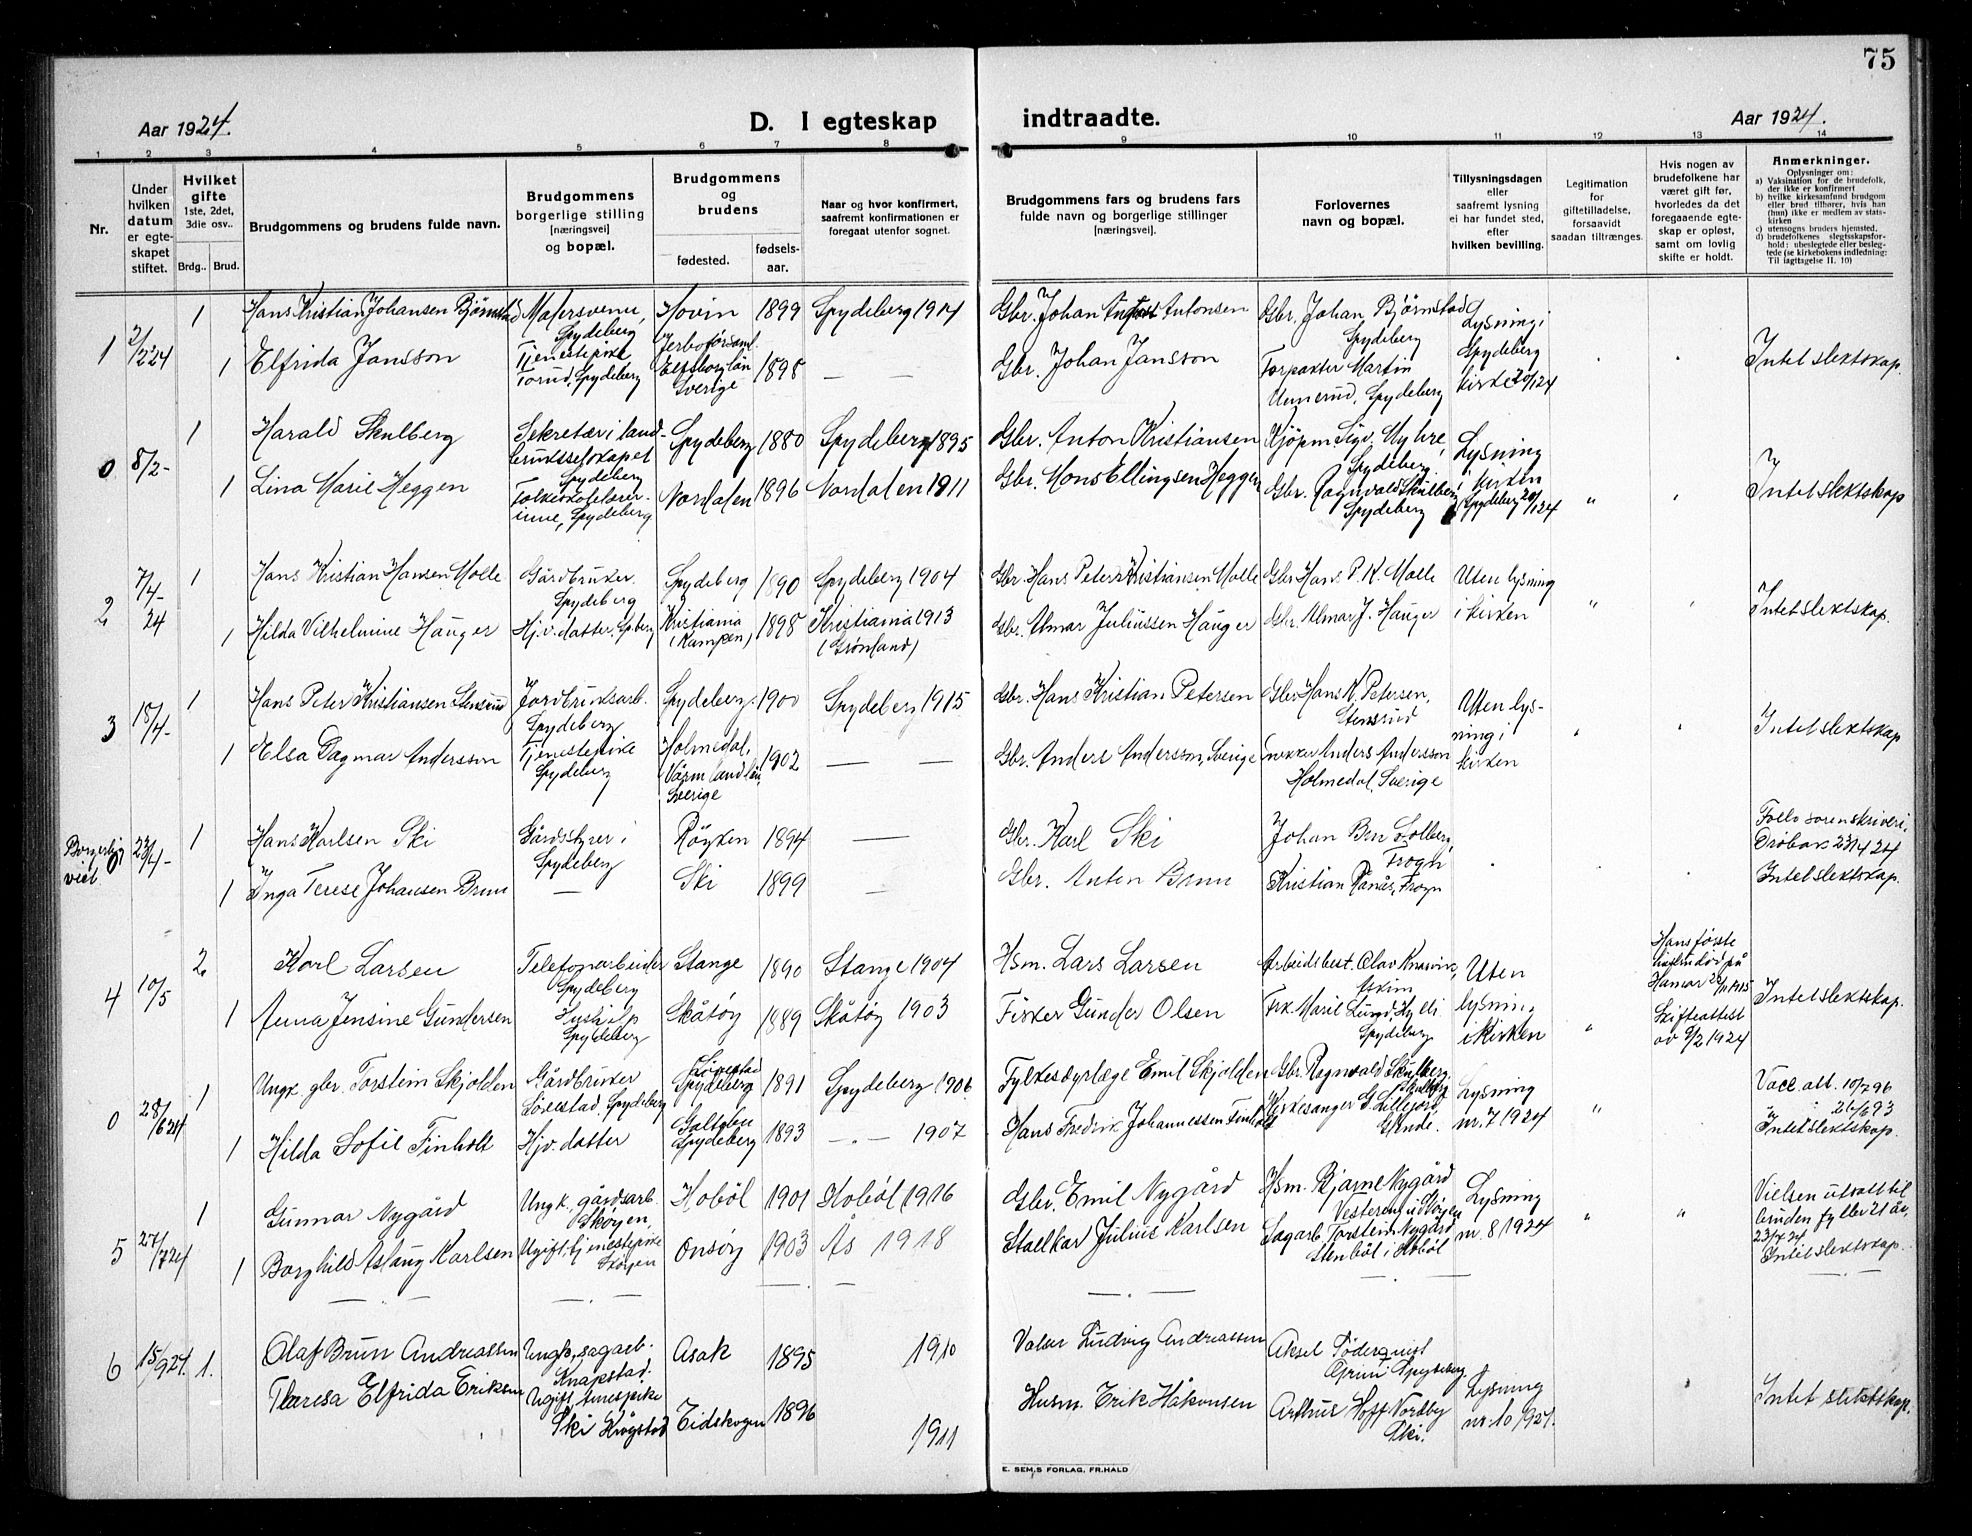 75
Aar 1924.
D. I egteskap
indtraadte.
Aar 1924.
1 2 3 4 5 6 7 8 9 10 11 12 13 14
Nr.
Under
hvilken
datum
er egte-
skapet
stiftet.
Hvilket
gifte
1ste, 2det,
3die osv..
Brdg.. Brud.
Brudgommens og brudens fulde navn.
Brudgommens
borgerlige stilling
[næringsvei]
og bopæl.
Brudgommens
og
brudens
fødested.
fødsels-
aar.
Naar og hvor konfirmert,
saafremt konfirmationen er
foregaat utenfor sognet.
Brudgommens fars og brudens fars
fulde navn og borgerlige stillinger
[næringsvei].
Forlovernes
navn og bopæl.
Tillysningsdagen
eller
saafremt lysning
ei har fundet sted,
efter
hvilken bevilling.
Legitimation
for
giftetilladelse,
forsaavidt
saadan tiltrænges.
Hvis nogen av
brudefolkene har
været gift før,
hvorledes da det
foregaaende egte-
skap er opløst,
samt om lovlig
skifte er holdt.
Anmerkninger.
Oplysninger om:
a) Vaksination for de brudefolk,
der ikke er konfirmert
b) hvilke kirkesamfund brudgom
eller brud tilhører, hvis han
(hun) ikke er medlem av stats-
kirken
c) utensogns bruders hjemsted.
d) brudefolkenes slegtsskapsfor-
hold: ubeslegtede eller besleg-
tede (se kirkebokens indledning:
Til iagttagelse II. 10)
1
2/2 24
1 Hans Kristian Johansen Bjørnstad
Malersvenn,
Spydeberg
Hovin 1899 Spydeberg 1914
Gbr. Johan Antonsen
Gbr. Johan Bjørnstad
Spydeberg
Lysning i
Spydeberg
kirke 20/1 24
1 Elfrida Jansson
Tjenestepike
Torud, Spydeberg
Elfsborg län
Sverige
1898 — —
Gbr. Johan Jansson
Forpakter Martin
Unnerud, Spydeberg
Intet slektskap.
0
8/2-
1 Harald Skulberg
Sekretær i land-
bruksselskapet
Spydeberg
Spydeberg 1880 Spydeberg 1895
Gbr. Anton Kristiansen
Kjøpm. Sigv. Myhre,
Spydeberg.
Lysning
i kirken
Spydeberg 20/1 24
1 Lina Marie Heggen
Folkeskolelærer-
inne, Spydeberg
Nordalen 1896 Nordalen 1911
Gbr. Mons Ellingsen Heggen
Gbr. Ragnvald Skulberg
Spydeberg
"
Intet slektskap
2
7/4-
24
1 Hans Kristian Hansen Molle
Gårdbruker.
Spydeberg
Spydeberg 1890 Spydeberg 1904
Gbr. Hans Peter Kristiansen Molle
Gbr Hans P. K. Molle
Uten lysning
i kirken
1 Hilda Vilhelmine Hauger
Hj.v. datter, Sp.berg
Kristiania
(Kampen)
1898
Kristiania 1913
(Grønland)
Gbr. Almar Juliussen Hauger
Gbr. Almar J. Hauger
"
Intet slektskap.
3
18/4-
1 Hans Peter Kristiansen Stensrud
Jordbruksarb.
Spydeberg
Spydeberg. 1900 Spydeberg 1915
Gbr. Hans Kristian Petersen
Gbr Hans K. Petersen,
Stensrud
Uten lys-
ning i
kirken
1 Elsa Dagmar Andersson
Tjenestepike
Spydeberg
Holmedal,
Värmland län,
Sverige
1902 — —
Gbr. Anders Andersson, Sverige
Anders Andersson
Holmedal, Sverige
Intet slektskap
Borgerlig
viet
0
23/4-
1 Hans Karlsen Ski
Gårdstyrer i
Spydeberg
Røyken 1894 —
Gbr. Karl Ski
Johan Brn Solberg,
Frogn
Follo sorenskriveri,
Drøbak 23/4 24
1 Inga Terese Johansen Brun
—
Ski 1899 —
Gbr. Anton Brun
Kristian Rånås, Frogn
Intet slektskap.
4
10/5
2 Karl Larsen
Telefonarbeider
Spydeberg
Stange 1890 Stange 1904
Hsm. Lars Larsen
Arbeidsbest. Olav
Askim
Uten
lysning
i kirken
Hans første
hustru død på
Hamar 1915
Skifteattest
av 9/2 1924
1 Anna Jensine Gundersen
Hushjelp
Spydeberg
Skåtøy 1889 Skåtøy 1903
Fisker Gunder Olsen
Frk. Marie Lund, Hylli
Spydeberg
"
Intet slektskap.
0
28/6 24
1 Ungk. gbr. Torstein Skjolden
Gårdbruker
Løvestad, Spydeberg
Løvestad
Spydeberg
1891 Spydeberg 1906
Fylkesdyrlæge Emil Skjolden
Gbr. Ragnvald Skulberg,
Skulberg
Lysning
nr. 7 1924
Vacc. att. 10/7 96
" 21/6 93
1 Hilda Sofie Finholt
Hjv. datter
Spydeberg
1893 -"- 1907
Hans Fredrik Johannessen Finholt
Kirkesanger G. Lillejord,
Grinde.
"
Intet slektskap.
5
27/7 24
1 Gunnar Nygård
Ungk., gårdsarb.
Skøyen,
Hobøl 1901 Hobøl 1916
Gbr. Emil Nygård
Hsm. Bjarne Nygård
Lysning
nr. 8 1924
Vielsen utsatt til
bruden fyller 21 år,
23/7 24
1 Borghild Aslaug Karlsen
Ugift tjenestepike
Skøyen
Onsøy 1903 Ås 1918
Stallkar Julius Karlsen
Sagarb. Torstein Nygård
Stenbøl i Hobøl
" "
Intet slektskap
6
15/9 24. 1.
Olaf Brun Andreassen
Ungk., sagarb.
Knapstad.
Asak 1895 1910
Valser Ludvig Andreassen
Aksel Söderquist
Grini Spydeberg.
Lysning
nr. 10 1924.
Thæresa Elfrida Eriksen
Ugift, tjenestepike
Ski Kråkstad
Eidskogen 1896
1911
Husm. Erik Håkonsen
Arthur Hoff Nordby
Ski.
Intet slektskap.
E. SEM,S FORLAG, FR.HALD